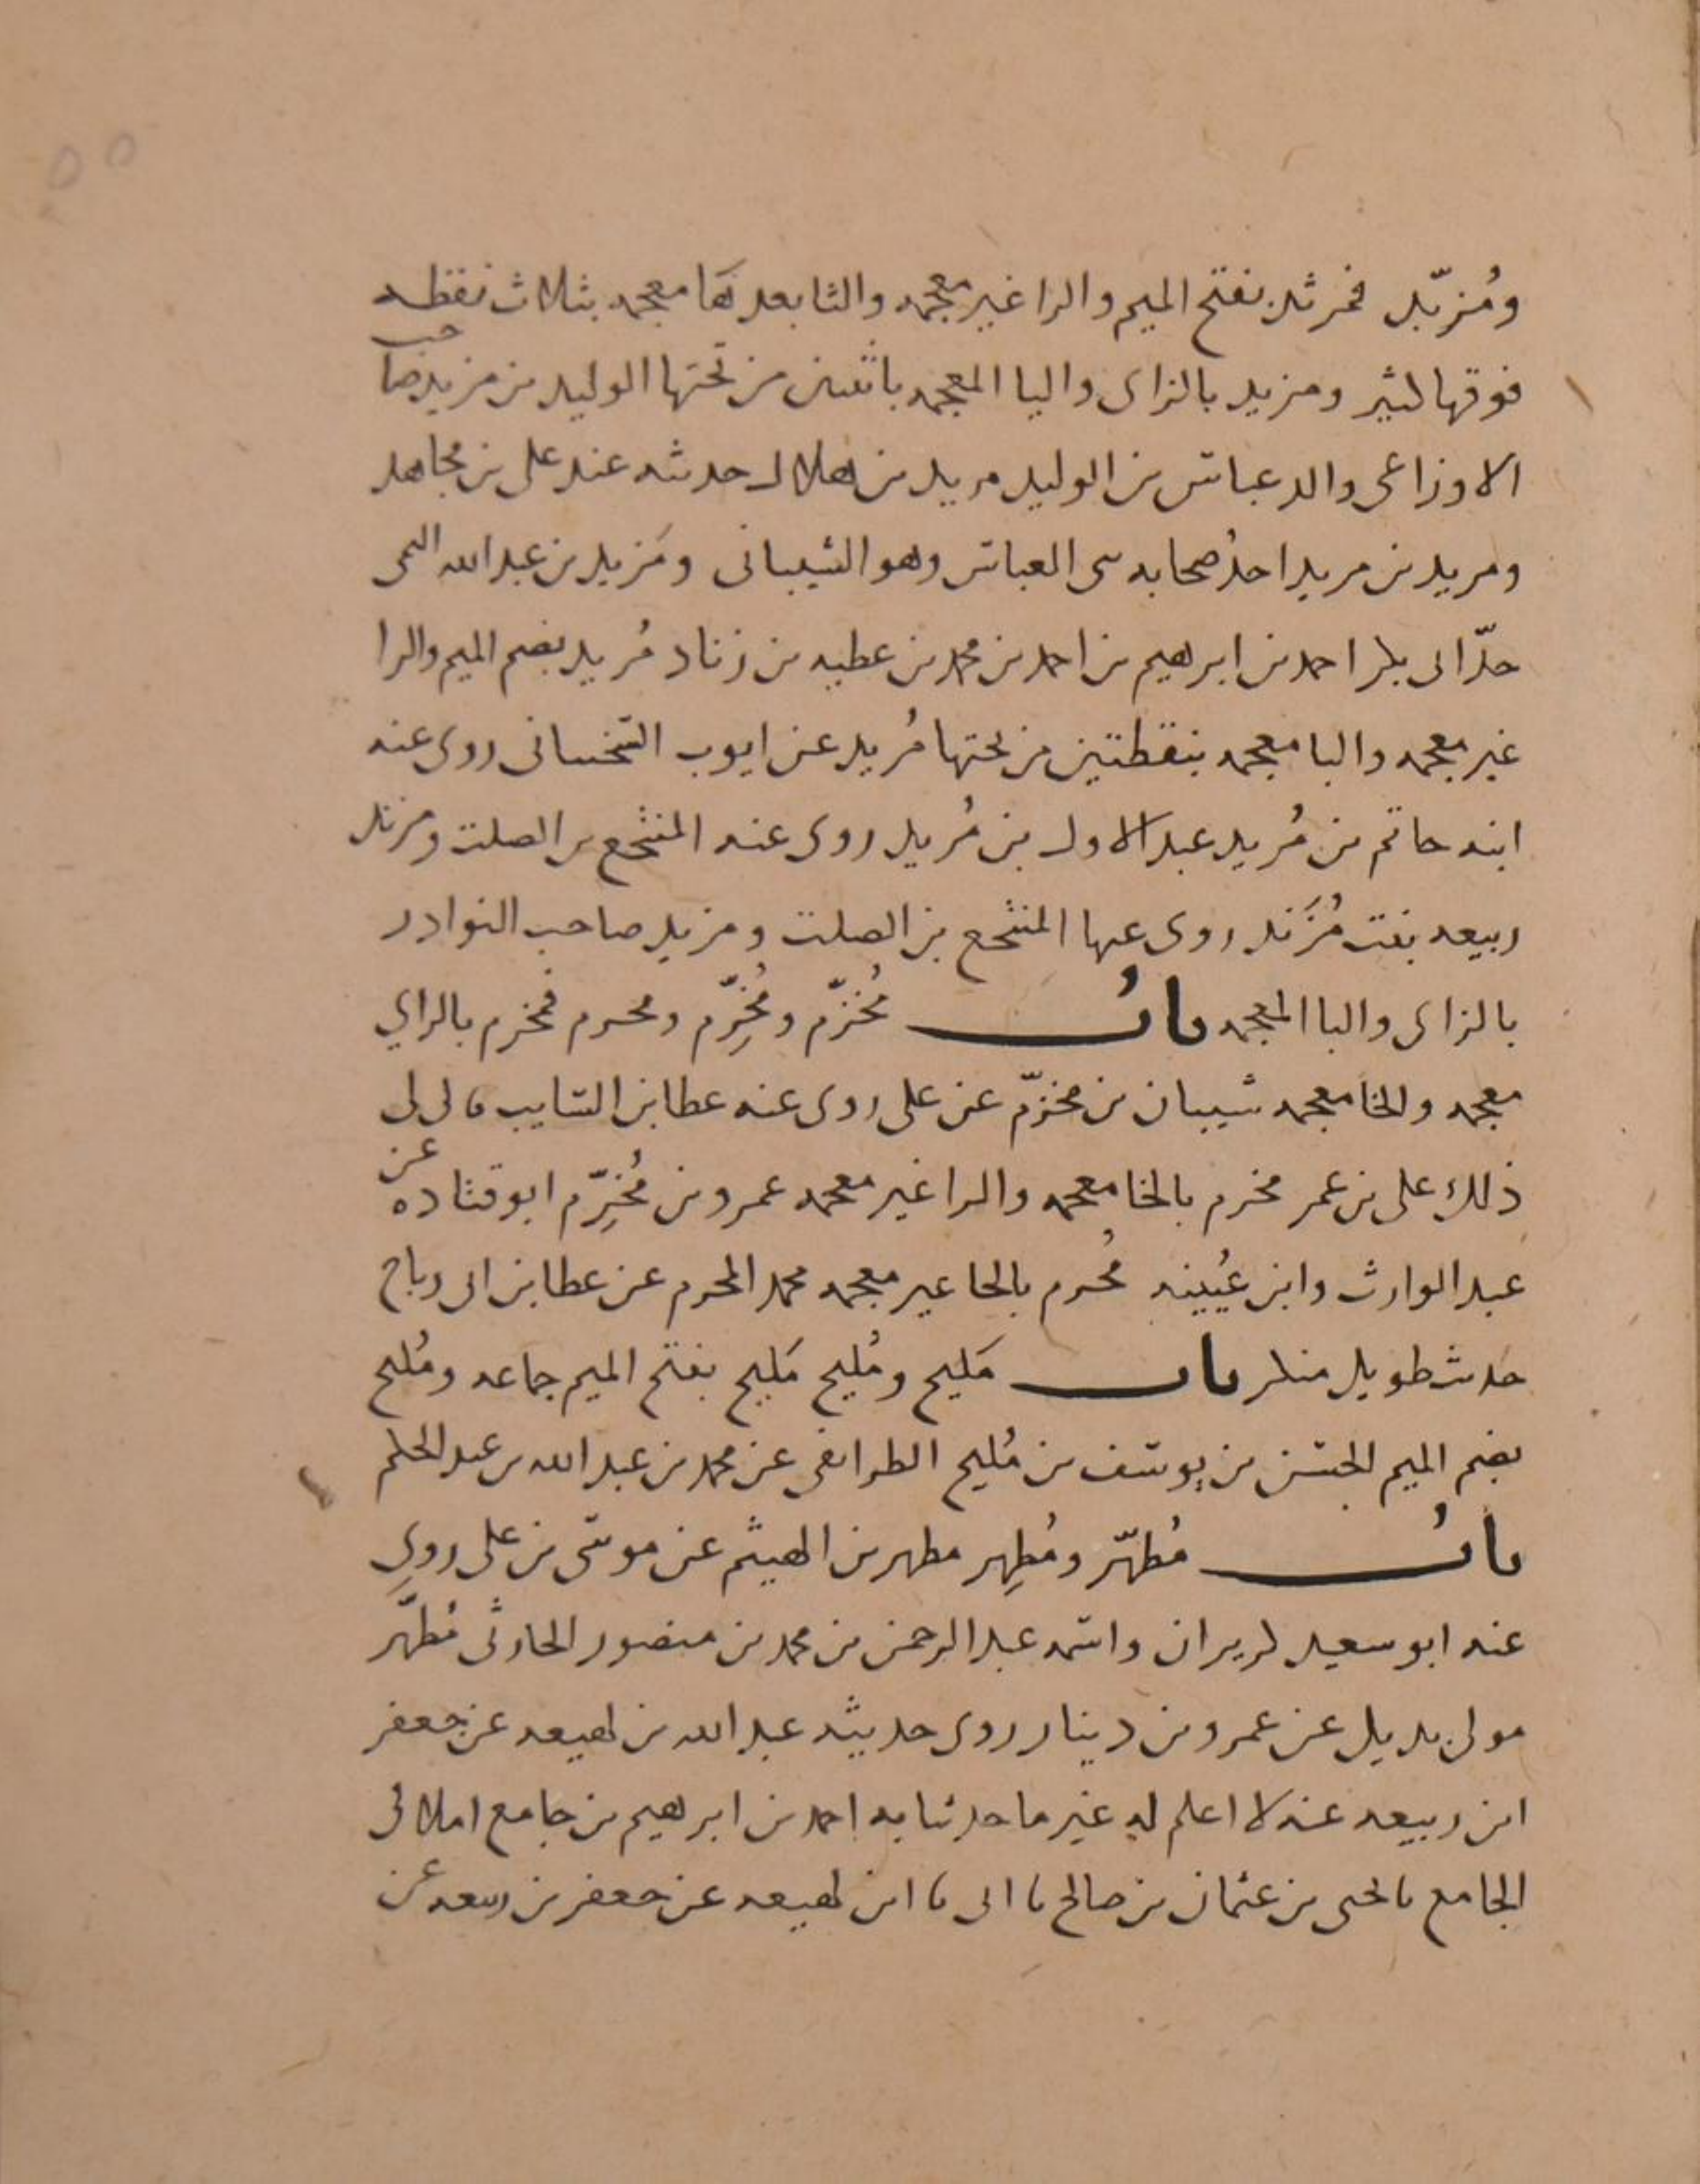 ٥٥
ومُزبّد فمرثد بفتح الميم والرا غير معجمه والثا بعدها معجمه بثلاث نقطه
فوقها كثير ومزيد بالزاى واليا المعجمه باثنين من تحتها الوليد بن مزيد صاحب
الاوزاعى والد عباس بن الوليد مريد بن هلال حدثه عند على بن مجاهد
ومريد بن مريد احد صحابه بنى العباس وهو الشيبانى ومَزيد بن عبد الله
جدّ ابى بكر احمد بن ابرهيم بن احمد بن محمد بن عطيه بن زناد مُريد بضم الميم والرا
غير معجمه واليا معجمه بنقطتين من تحتها مُريد عن ايوب السختيانى روى عنه
ابنه حاتم بن مُريد عبد الاول بن مُريد روى عنه المنتجع بن الصلت ومزند
ربيعه بنت مُزَند روى عنها المنتجع بن الصلت ومزبد صاحب النوادر
بالزاى والبا المعجمه باب مُخزّم ومُخرِّم ومحرم فمخزم بالزاي
معجمه والخا معجمه شيبان بن مخزّم عن على روى عنه عطا بن السايب قال لى
ذلك على بن عمر مخرم بالخا معجمه والرا غير معجمه عمرو بن مُخرِّم ابو قتاده عن
عبد الوارث وابن عُيينه مُحرم بالحا غير معجمه محمد المحرم عن عطا بن ابى رباح
حدث طويل منكر باب مَليح ومُليح مَليح بفتح الميم جماعه ومُليح
بضم الميم الحسن بن يوسف بن مُليح الطرائفى عن محمد بن عبد الله بن عبد الحكم
بابُ مُطهّر ومُطهِر مطهر بن الهيثم عن موسى بن على روي
عنه ابو سعيد كربزان واسمه عبد الرحمن بن محمد بن منصور الحارثى مُطهَّر
مولى بديل عن عمرو بن دينار روى حديثه عبد الله بن لهيعه عن جعفر
ابن ربيعه عنه لا اعلم له غير ما حدثنا به احمد بن ابرهيم بن جامع املا فى
الجامع نا يحيى بن عثمان بن صالح نا ابى نا ابن لهيعه عن جعفر بن ربيعه عن